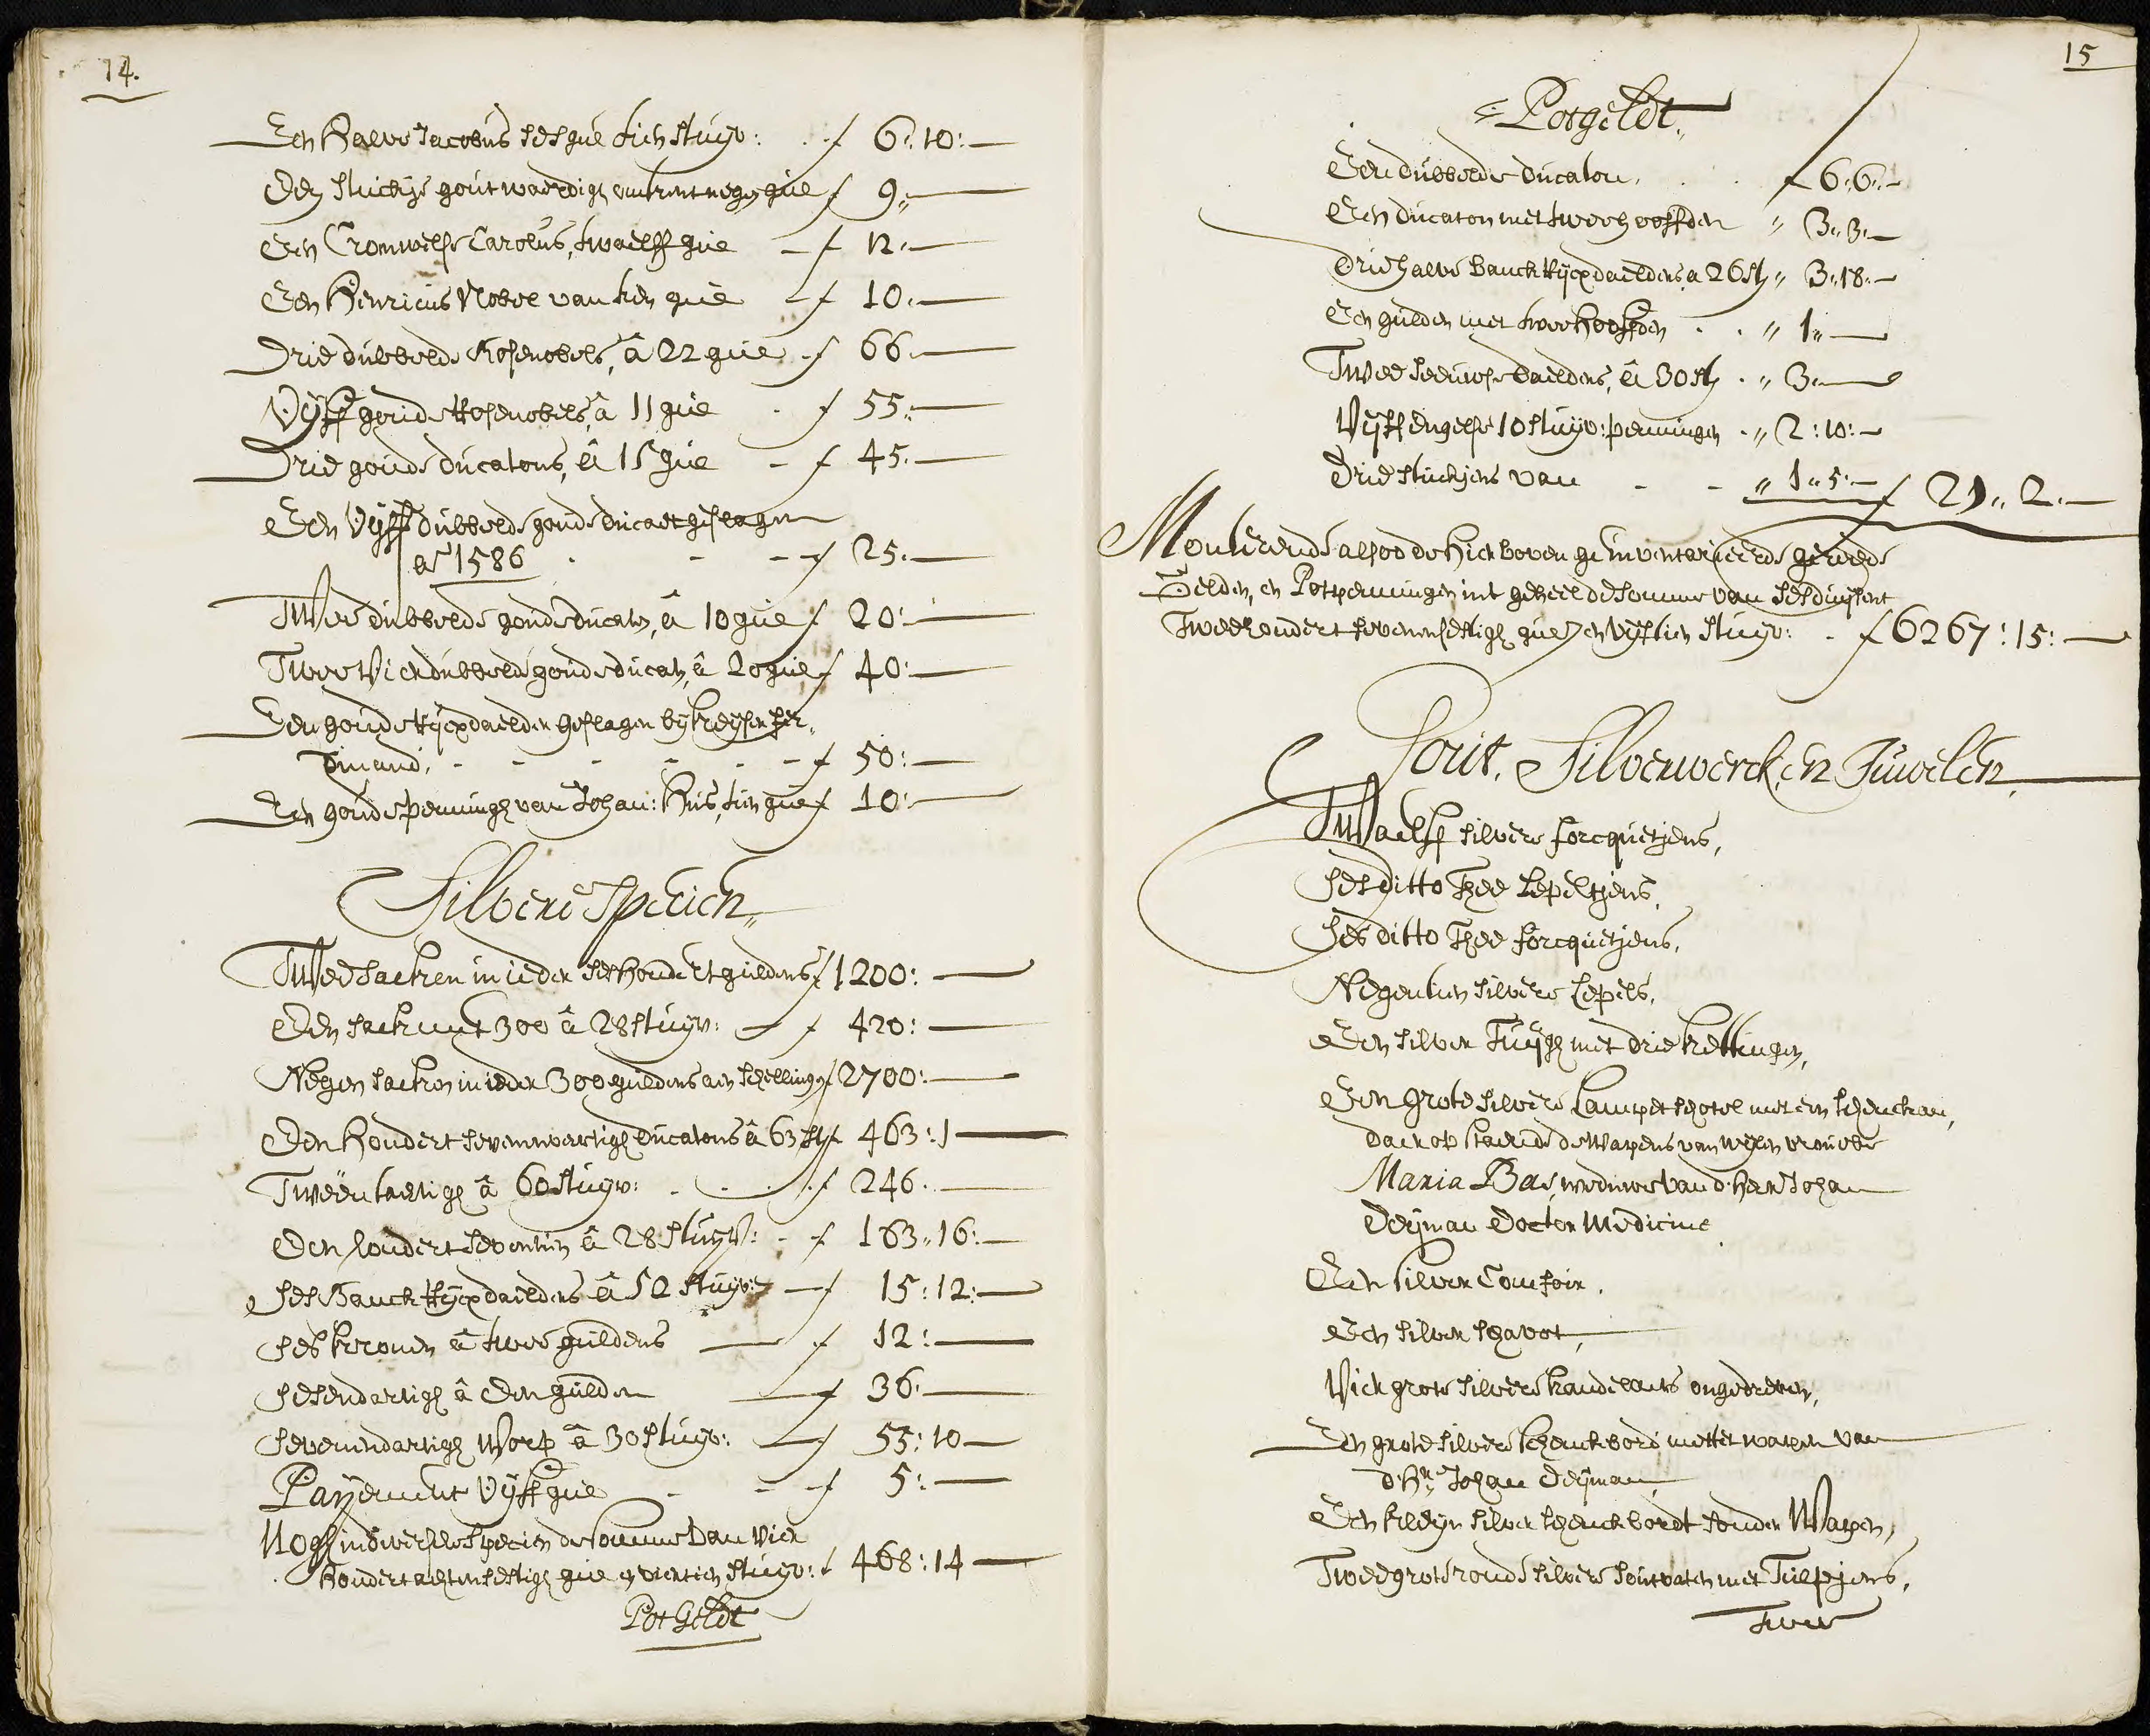 14.
Een Halve Jacobus ses gul tien stuyv: . . f 6:10:—
Een stuckje gout waerdigh omtrent negen gul f 9„—
Een Cromwelse Carolus, twaelff gul — f 12.—
Een Henricus Nobel van tien gul — f 10.—
Drie dubbelde Rosenobels, â 22 gul . f 66.—
Vyff goude Rosenobels, â 11 gul . f 55:—
Drie goude ducatons, â 15 gul — f 45.—
Een Vyff dubbelde goude ducaet geslagen
a° 1586 . - - f 25.—
Twee dubbelde goude ducaten, â 10 gul f 20:—
Twee Vierdubbelde goude ducaten, â 20 gul f 40:—
Een goude Rycxdaelder geslagen by keyser fer„
dinand, - - - - - f 50:—
Een goude penningh van Johan: Hus, tien gul f 10:—
Silvere Specien„
Twee sacken in ieder seshondert guldens f 1200:—
Een sack met 300 â 28 stuyv: — f 420:—
Negen sacken in ieder 300 guldens aen schellingen f 2700:—
Een Hondert sevenenveertigh ducatons â 63 st f 463:1—
Tweentachtigh â 60 stuyv: . . . f 246.—
Een hondert seventien â 28 stuyv: - f 163„16:—
Ses Banck Rycxdaelders â 52 stuyv: — f 15:12:—
Ses kroonen â twee guldens — f 12:—
Sesendartigh â Een gulden — f 36:—
Sevenendartigh Worp â 30 stuyv: — f 55:10—
Payement Vyff gul - - f 5:—
Noch in diversche Specien de somme van vier
hondert achtensestigh gul en veertien stuyv: f 468:14—
Pot Geldt
15
Potgeldt„
Een dubbelde ducaton, . . f 6„6„—
Een ducaton met twee hooffden „ 3„3„—
Drie halve banck Rycxdaelders a 26 st „ 3„18„—
Een gulden met twee Hooffden . . „ 1„—
Twee Zeeuwse daelders, â 30 st . „ 3„—
Vyff Engelse 10 stuyv: penningen . „ 2:10:—
Drie stuckjens van - - „ 1„5:— f 21„2.—
Monterende alsoo de hier boven geinventarieerde gereede
Gelden, en Potpenningen int geheel de somme van sesduysent
Tweehondert sevenensestigh gul en vyftien stuyv: . f 6267:15:—
Gout, Silverwerck, en Juwelen,
Twaelff silvere forcquetjens,
Ses ditto Thee Lepeltjens,
Ses ditto Thee forcquetjens,
Negentien silvere Lepels,
Een silver Tuygh met drie kettingen,
Een Grote silvere Lampet schotel met een schenckan,
daer op staende de Wapens van wylen vrouwe
Maria Bas, weduwe van d: Heer Johan
Deyman Doctor Medicine
Een silver Comfoir,
Een silver schavot,
Vier grote silvere kandelaers ongedreven,
Een grote silvere schenckbord mettet wapen van
d: Hr: Johan Deyman,
Een kleyn silver schenckbordt sonder Wapen,
Twee grote ronde silvere soutvaten met Tulpjens,
Twee